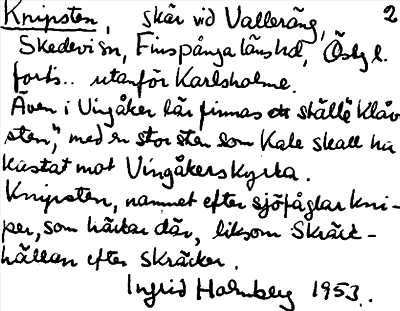 Knipsten, skär vid Valleräng, 2
Skedevi sn, Finspånga länshd, Östg l.
forts.. utanför Karlsholme.
Även i Vingåker lär finnas ett ställe "Klåv
sten", med en stor sten som Kale skall ha
kastat mot Vingåkers Kyrka.
Knipsten, namnet efter sjöfåglar kni-
per, som häckar där, liksom Skräck-
hällan efter skräckor.
Ingrid Holmberg 1953.